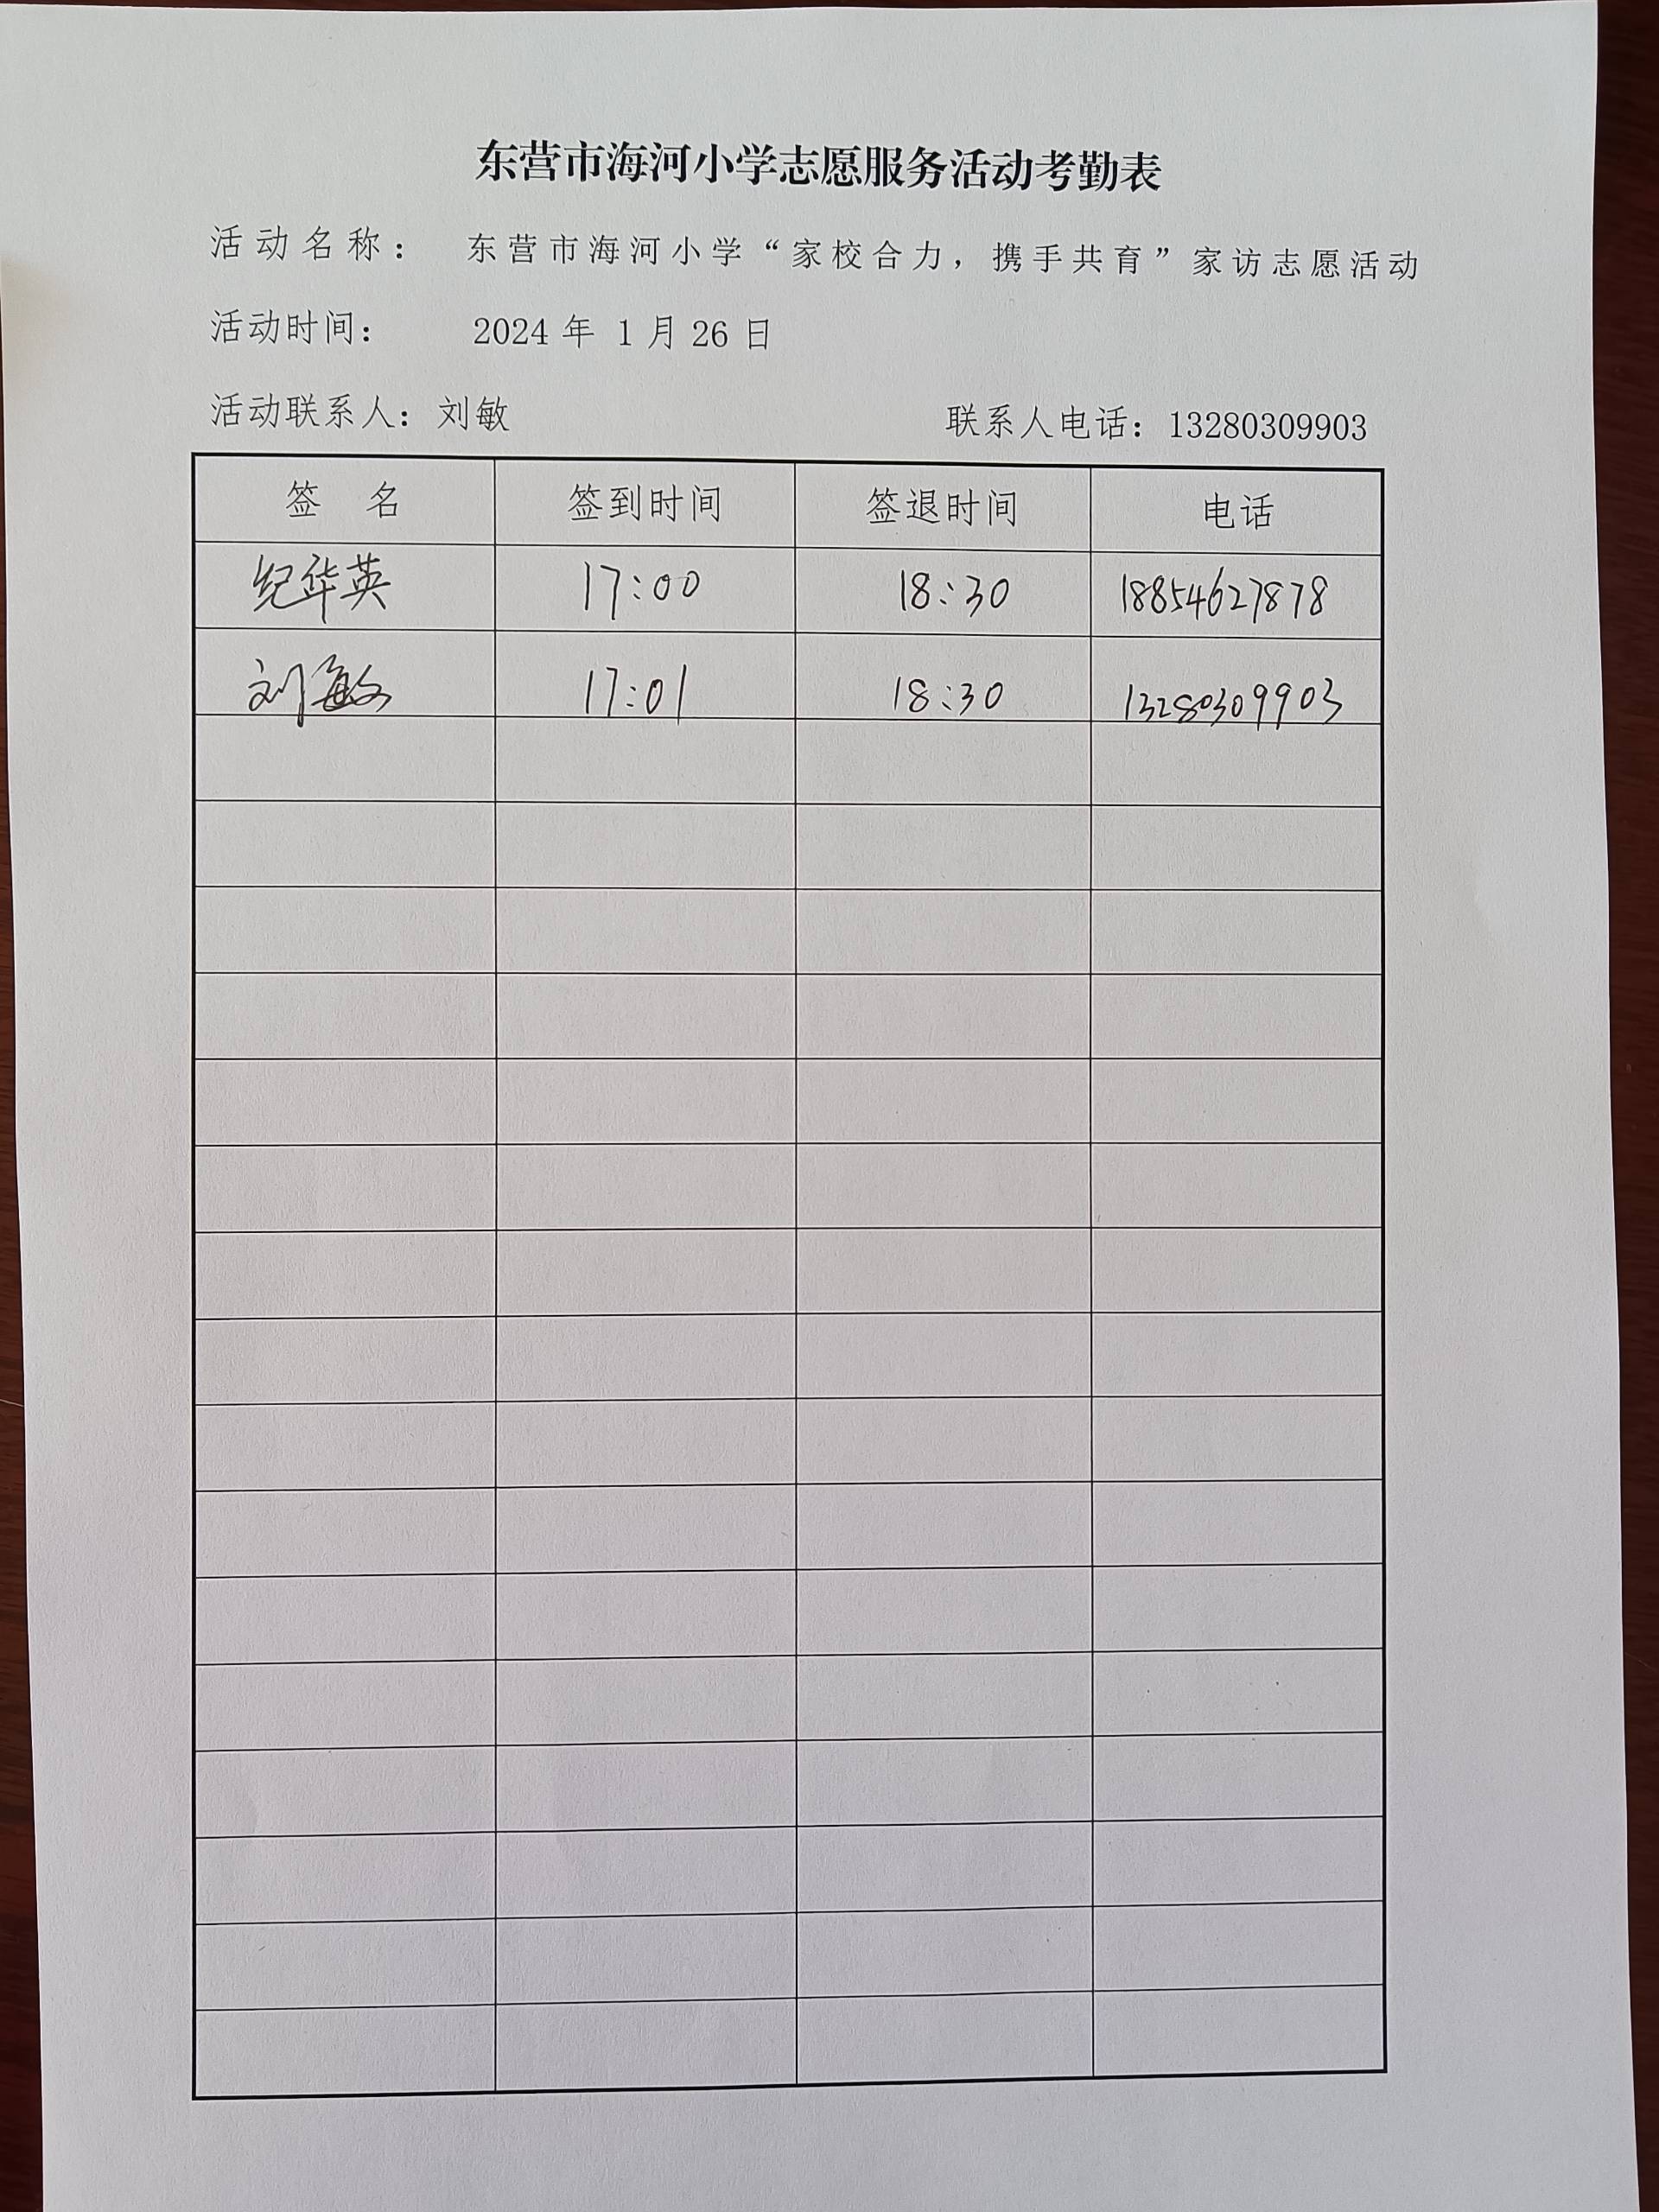 东营市海河小学志愿服务活动考勤表
活动名称： 东营市海河小学“家校合力，携手共育”家访志愿活动
活动时间： 2024 年 1 月 26 日
活动联系人：刘敏 联系人电话：13280309903
签 名 签到时间 签退时间 电话
纪华英 17:00 18:30 18854627878
刘敏 17:01 18:30 13280309903